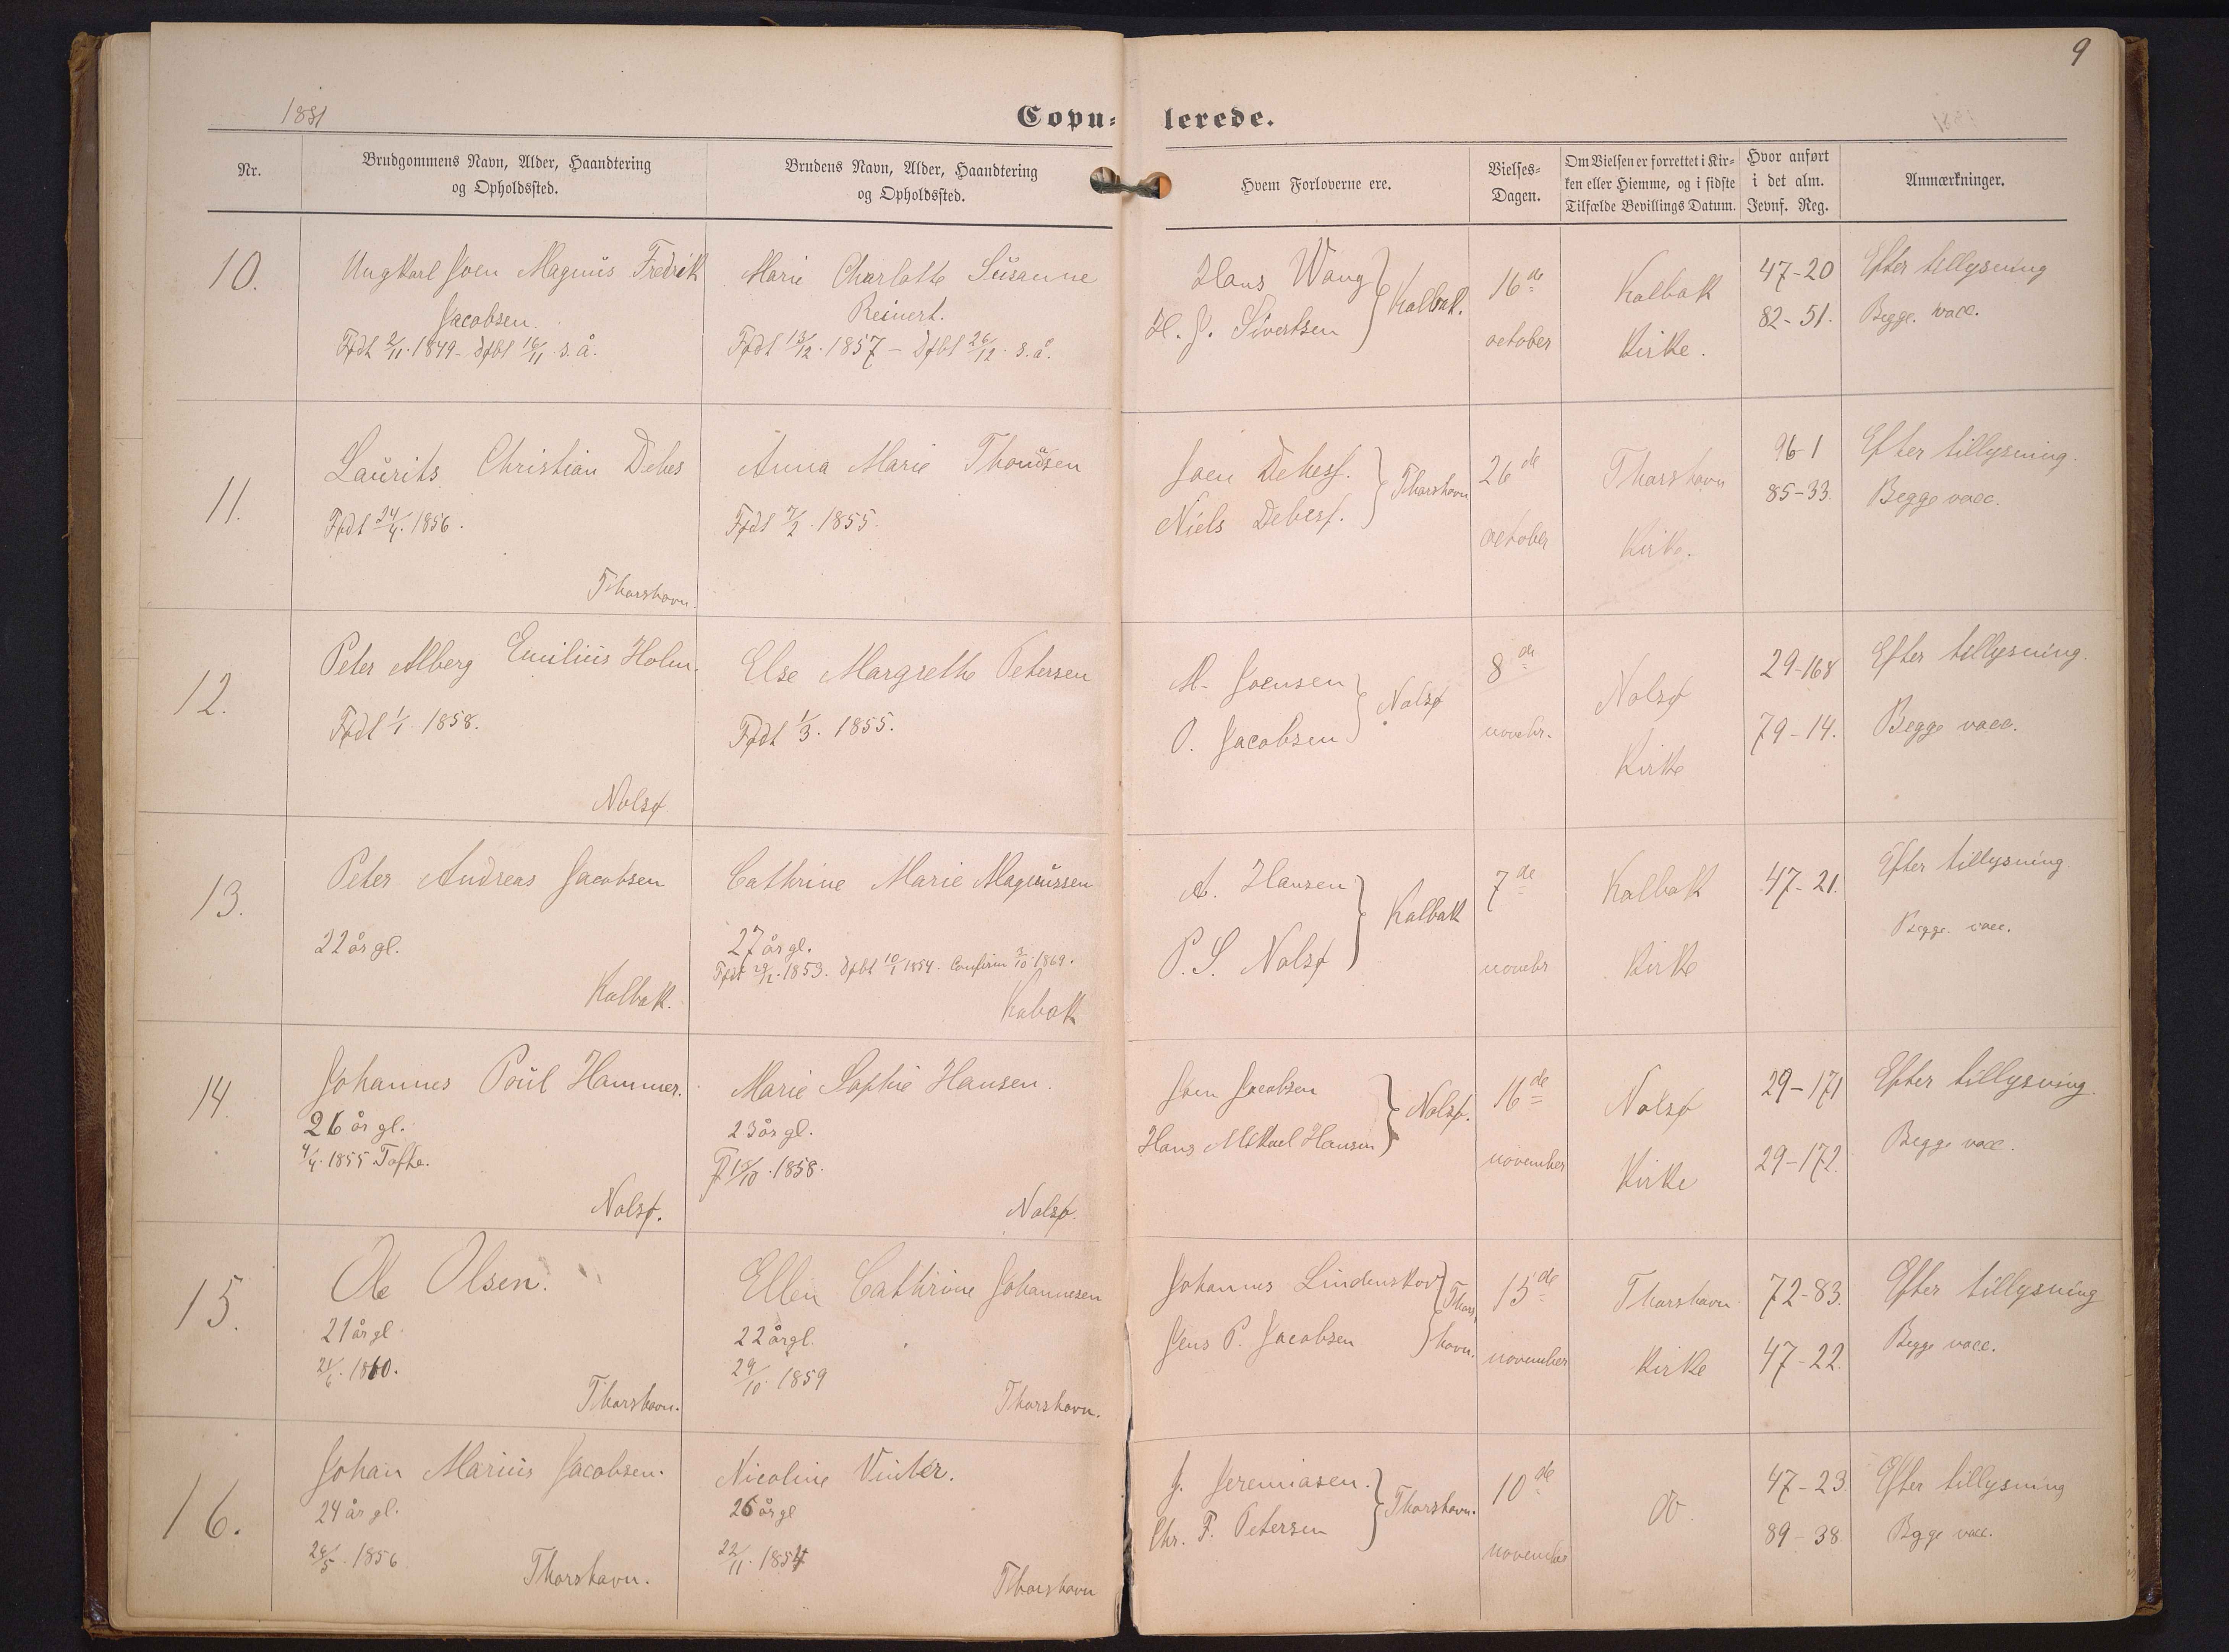 9
1881
Copu=lerede.
Nr.
Brudgommens Navn, Alder, Haandtering
og Opholdssted.
Brudens Navn, Alder, Haandtering
og Opholdssted.
Hvem Forloverne ere.
Vielses=
Dagen.
Om Vielsen er forrettet i Kir=
ken eller Hiemme, og i sidste
Tilfælde Bevillings Datum.
Hvor anført
i det alm.
Jevnf. Reg.
Anmærkninger.
10.
Ungkarl Joen Magnus Fredrik
Jacobsen.
Født 2/11. 1849 - døbt 16/11 s. å.
Marie Charlotte Susanne
Reinert.
Født 13/12. 1857 - Døbt 26/12 s. å.
Hans Wang
H. J. Sivertsen
Kalbak.
16de
october
Kalbak
Kirke.
47-20
82-51.
Efter tillysning
Begge vacc.
11.
Laurits Christian Debes
Født 24/4. 1856.
Thorshavn.
Anna Marie Thomsen
Født 7/2. 1855.
Joen Debess.
Niels Debess.
Thorshavn
26de
october
Thorshavn
Kirke.
96-1
85-33.
Efter tillysning.
Begge vacc.
12.
Peter Alberg Emilius Holm.
Født 1/1. 1858.
Nolsø
Else Margrethe Petersen
Født 1/3. 1855.
M. Joensen
O. Jacobsen
Nolsø
8de
novebr.
Nolsø
Kirke
29-168
79-14.
Efter tillysning.
Begge vacc.
13.
Peter Andreas Jacobsen
22 år gl.
Kalbak.
Cathrine Marie Magnussen
27 år gl.
Født 29/12. 1853. Døbt 10/1 1854. Confirm 3/10. 1869.
Kabak
A. Hansen
P. S. Nolsø
Kalbak
7de
novebr
Kalbak
Kirke
47-21.
Efter tillysning.
Begge vacc.
14.
Johannes Poul Hammer.
26 år gl.
4/4. 1855 Tofte.
Nolsø.
Marie Sophie Hansen.
23 år gl.
F 15/10. 1858.
Nolsø.
Joen Jacobsen
Hans Mikael Hansen
Nolsø.
16de
november
Nolsø
Kirke
29-171
29-172.
Efter tillysning.
Begge vacc.
15.
Ole Olsen.
21 år gl
21/6. 1860.
Thorshavn.
Ellen Cathrine Johannesen
22 år gl
29/10. 1859
Thorshavn.
Johannes Lindenskov
Jens P. Jacobsen
Thors,
havn.
15de
november
Thorshavn
Kirke
72-83.
47-22.
Efter tillysning
Begge vacc.
16.
Johan Marius Jacobsen.
24 år gl.
28/5. 1856
Thorshavn.
Nicoline Vinter.
26 år gl
22/11. 1854
Thorshavn
J. Jeremiasen.
Chr. F. Petersen
Thorshavn.
10de
november
do
47-23
89-38
Efter tillysning
Begge vacc.